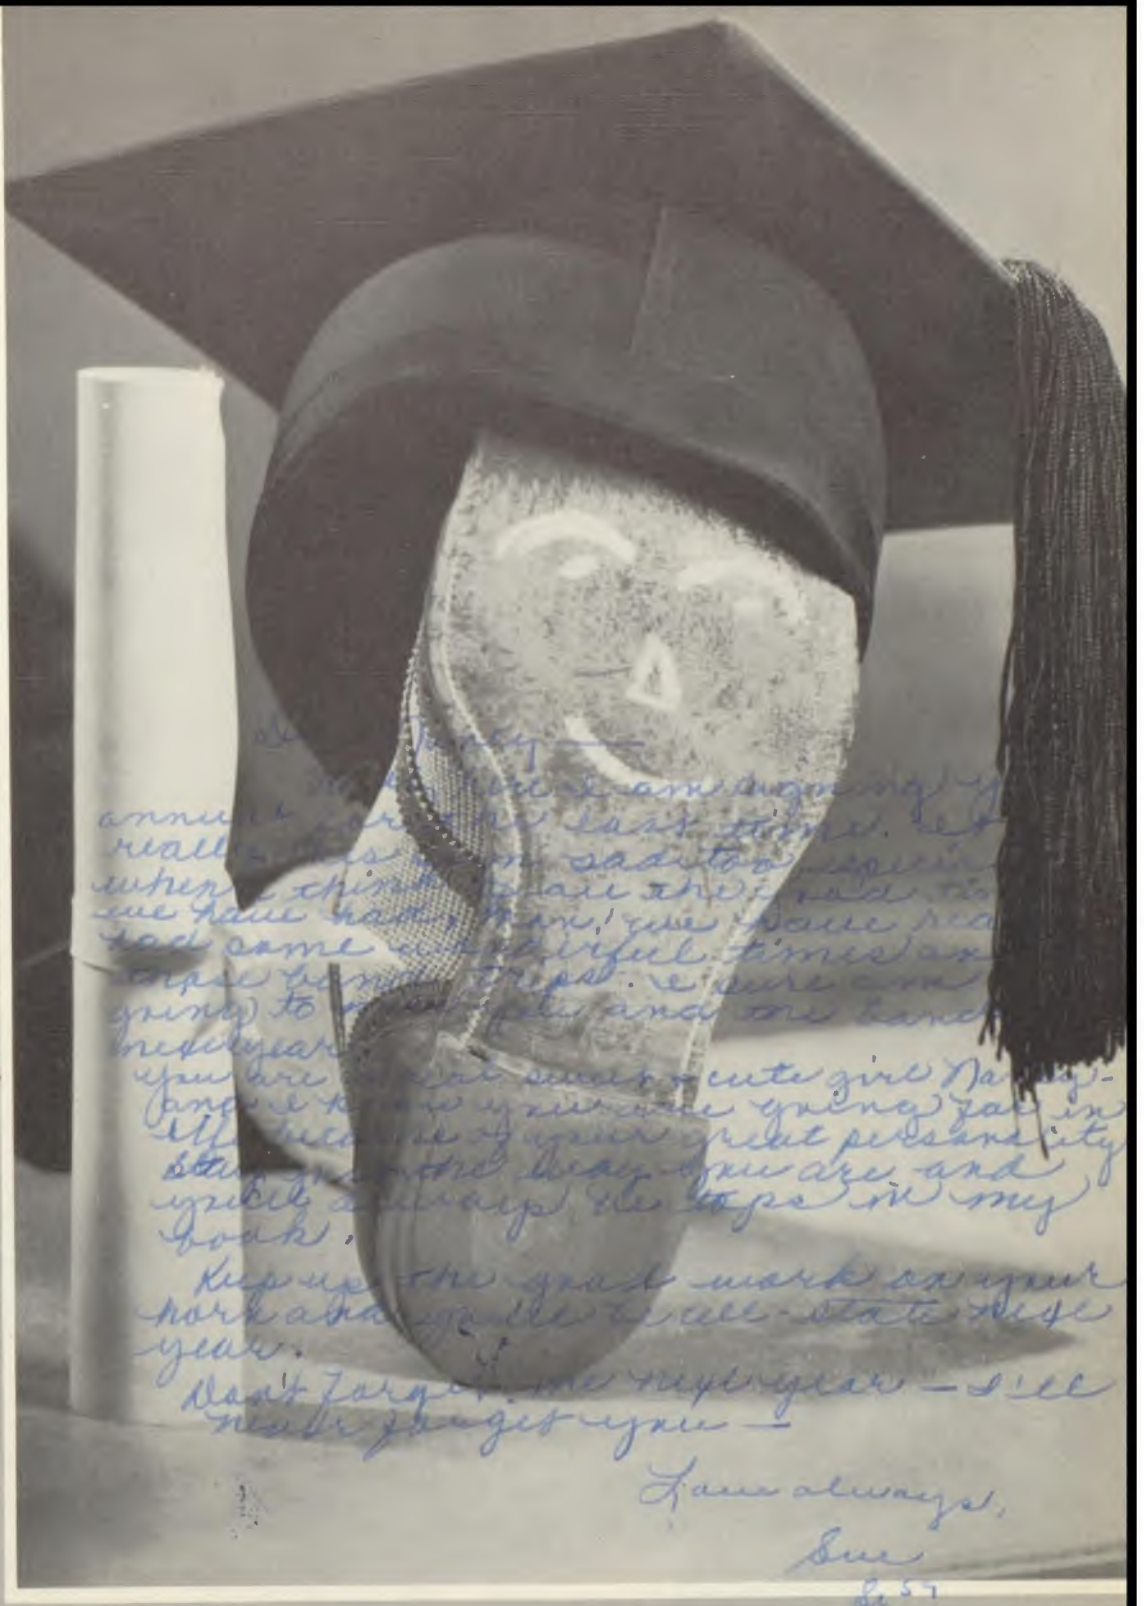 Dear Nancy —
Well here I am signing
annual for the last time.
really is sad too especially
when I think of all the good
we have had. Man, we have
had some wonderful times on
those band trips. I sure am
going to miss you and the band
next year.
You are a real sweet + cute girl Nancy -
and I know you are going far in
life because of your great personality
Stay the way you are and
you'll always be tops in my
book.
Keep up the good work on your
horn and you'll be all-state next
year.
Don't forget me next year — I'll
never forget you —
Love always,
Sue
Sr 59